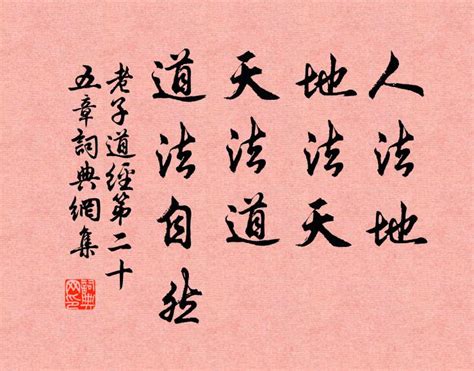 人法地
地法天
天法道
道法自然
老子道經第二十
五章詞典網集
詞典网印